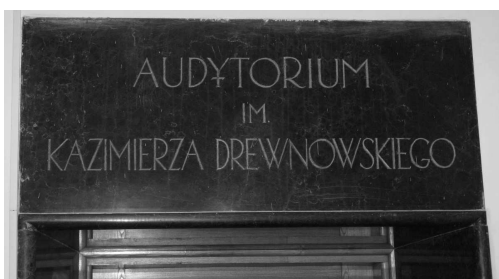 AUDYTORIUM
IM.
KAZIMIERZA DREWNOWSKIEGO